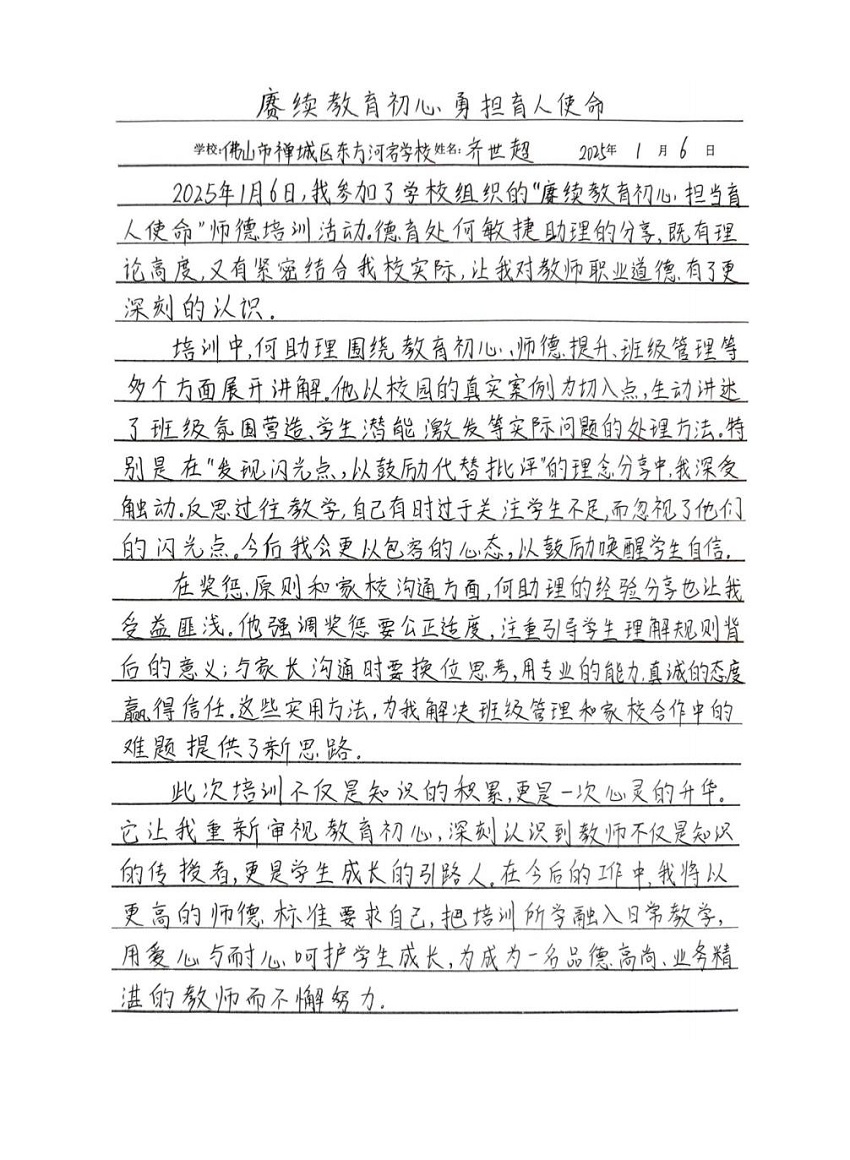 赓续教育初心 勇担育人使命
学校:佛山市禅城区东方河宕学校 姓名:齐世超 2025年 1 月 6 日
2025年1月6日,我参加了学校组织的“赓续教育初心,担当育
人使命”师德培训活动。德育处何敏捷助理的分享,既有理
论高度,又有紧密结合我校实际,让我对教师职业道德有了更
深刻的认识。
培训中,何助理围绕教育初心、师德提升、班级管理等
多个方面展开讲解。他以校园的真实案例为切入点,生动讲述
了班级氛围营造、学生潜能激发等实际问题的处理方法。特
别是在“发现闪光点,以鼓励代替批评”的理念分享中,我深受
触动。反思过往教学,自己有时过于关注学生不足,而忽视了他们
的闪光点。今后我会更以包容的心态,以鼓励唤醒学生自信。
在奖惩原则和家校沟通方面,何助理的经验分享也让我
受益匪浅。他强调奖惩要公正适度,注重引导学生理解规则背
后的意义;与家长沟通时要换位思考,用专业的能力,真诚的态度
赢得信任。这些实用方法,为我解决班级管理和家校合作中的
难题提供了新思路。
此次培训不仅是知识的积累,更是一次心灵的升华。
它让我重新审视教育初心,深刻认识到教师不仅是知识
的传授者,更是学生成长的引路人。在今后的工作中,我将以
更高的师德标准要求自己,把培训所学融入日常教学,
用爱心与耐心呵护学生成长,为成为一名品德高尚、业务精
湛的教师而不懈努力。